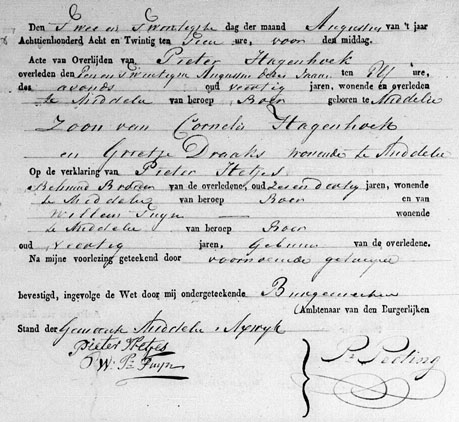 Den Twee en Twintigste dag der maand Augustus van 't jaar
Achttienhonderd Acht en Twintig ten Tien ure, voor den middag.
Acte van Overlijden van Pieter Hagenhoek
overleden den Een en Twintigste Augustus dezes Jaars ten Elf ure,
des avonds oud veertig jaren, wonende en overleden
te Middelie van beroep Boer geboren te Middelie
Zoon van Cornelis Hagenhoek
en Grietje Draaks wonende te Middelie
Op de verklaring van Pieter Hetjes
Behuwd Broeder van de overledene, oud jaren, wonende
te Middelie van beroep Boer en van
Willem Tuyn wonende
te Middelie van beroep Boer
oud Veertig jaren, Gebuur van de overledene.
Na mijne voorlezing geteekend door voornoemde getuigen
bevestigd, ingevolge de Wet door mij ondergeteekende Burgemeester
(Ambtenaar van den Burgerlijken
Stand der Gemeente Middelie Axwyk
Pieter Hetjes
W. Pz Tuyn
Pr Peeting